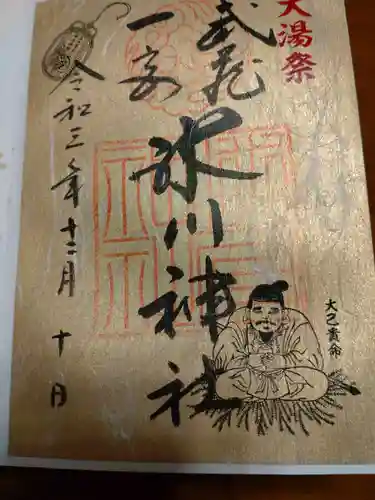 大湯祭
武蔵
一宮
氷川神社
令和三年十二月十日
大己貴命